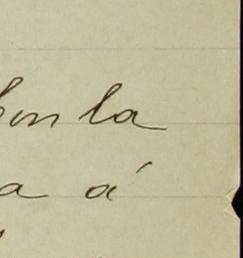 Con la
a á